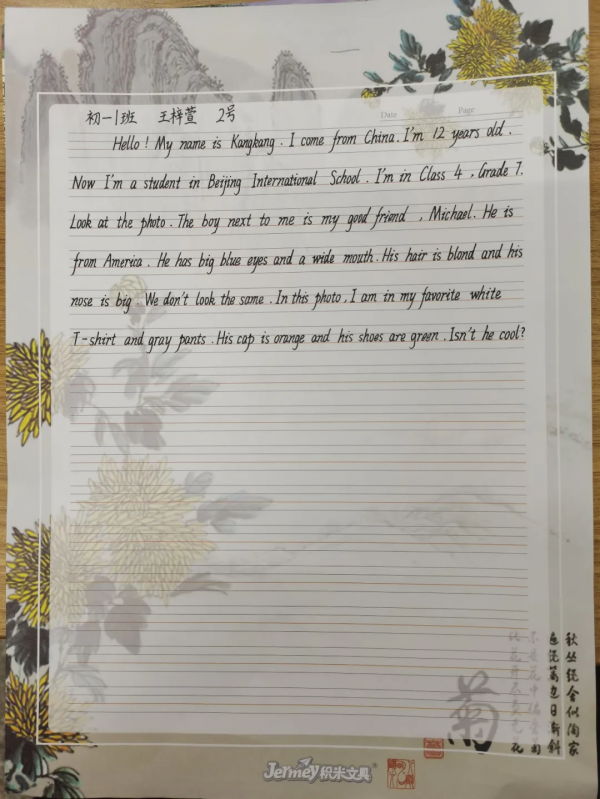 初一1班 王梓萱 2号
Date Page
Hello! My name is Kangkang. I come from China. I'm 12 years old.
Now I'm a student in Beijing International School. I'm in Class 4, Grade 7.
Look at the photo. The boy next to me is my good friend, Michael. He is
from America. He has big blue eyes and a wide mouth. His hair is blond and his
nose is big. We don't look the same. In this photo, I am in my favorite white
T-shirt and gray pants. His cap is orange and his shoes are green. Isn't he cool?
秋丛绕舍似陶家
遍绕篱边日渐斜
不是花中偏爱菊
此花开尽更无花
菊
Jermey积米文具